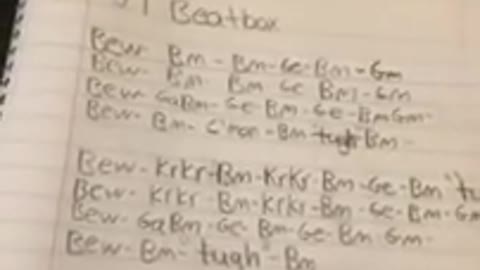 Beatbox
Bew- Bm - Bm - Ge - Bm - Gm
Bew- Bm - Bm Ge Bm - Gm
Bew- GaBm - Ge - Bm - Ge - BmGm-
Bew- Bm - C'mon - Bm tugh Bm -
Bew- KrKr-Bm-KrKr-Bm-Ge-Bm
Bew- KrKr-Bm-KrKr-Bm-Ge-Bm-Gm
Bew- GaBm-Ge-Bm-Ge-Bm-Gm-
Bew- Bm- "tugh"- Bm